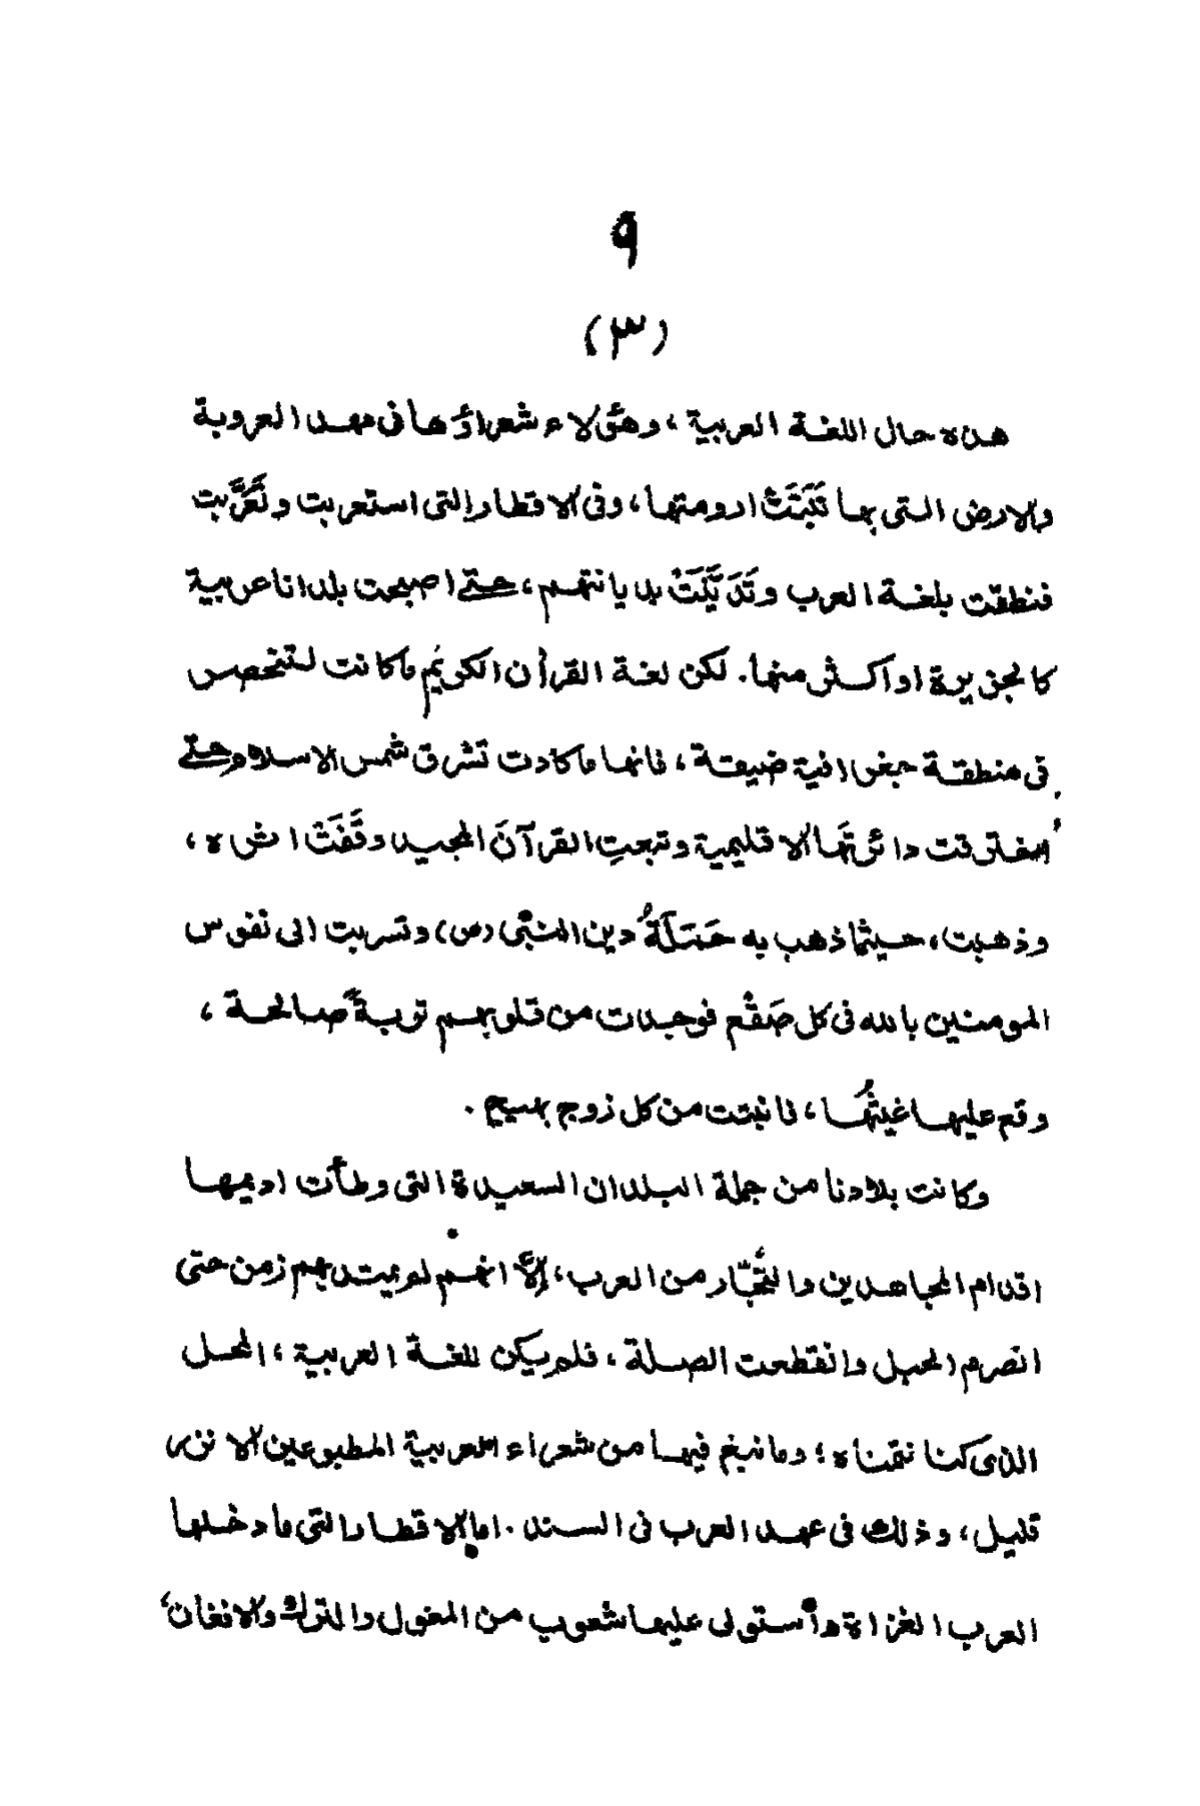 ٩
(٣)
هذه حال اللغة العربية ، وهؤلاء شعراؤها فى مهد العروبة
والارض التى بها نَبَتَتْ ارومتها ، وفى الاقطار التى استعربت وتَعَرَّبت
فنطقت بلغة العرب وتَدَيَّنَتْ بديانتهم ، حتى اصبحت بلدانا عربية
كالجزيرة او اكثر منها . لكن لغة القرأن الكريم ما كانت لتنحصر
فى منطقة جغرافية ضيقة ، فانها ما كادت تشرق شمس الاسلام حتى
أفترقت دائرتَها الاقليمية وتبعتِ القرآنَ المجيد وقَفَتْ اثره ،
وذهبت ، حيثما ذهب به حَمَلَةُ دين النبى (ص) وتسربت الى نفوس
المومنين بالله فى كل صَقْع فوجدت من قلوبهم توبةً صالحة ،
وقع عليها غيثُها ، فانبتت من كل زوج بهيج .
وكانت بلادنا من جملة البلدان السعيدة التى وطأت اديمها
اقدام المجاهدين والتُّجّار من العرب ، إلاّ انهم لم يمتد بهم زمن حتى
انصرم الحبل وانقطعت الصلة ، فلم يكن للغة العربية ، المحل
الذى كنا نتمناه ؛ وما نبغ فيها من شعراء العربية المطبوعين الا نزر
قليل ، وذلك فى عهد العرب فى السند . اما الاقطار التى ما دخلها
العرب الغزاة وأستولى عليها شعوب من المغول والترك والافغان ،